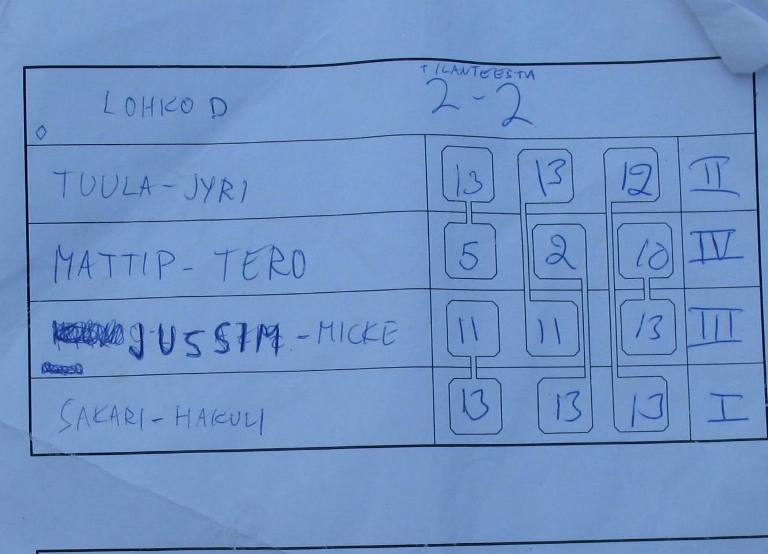 TILANTEESTA
LOHKO D 2-2
TUULA-JYRI 13 13 12 II
MATTIP-TERO 5 2 10 IV
JUSSIM-MICKE 11 11 13 III
SAKARI-HAKULI 13 13 13 I